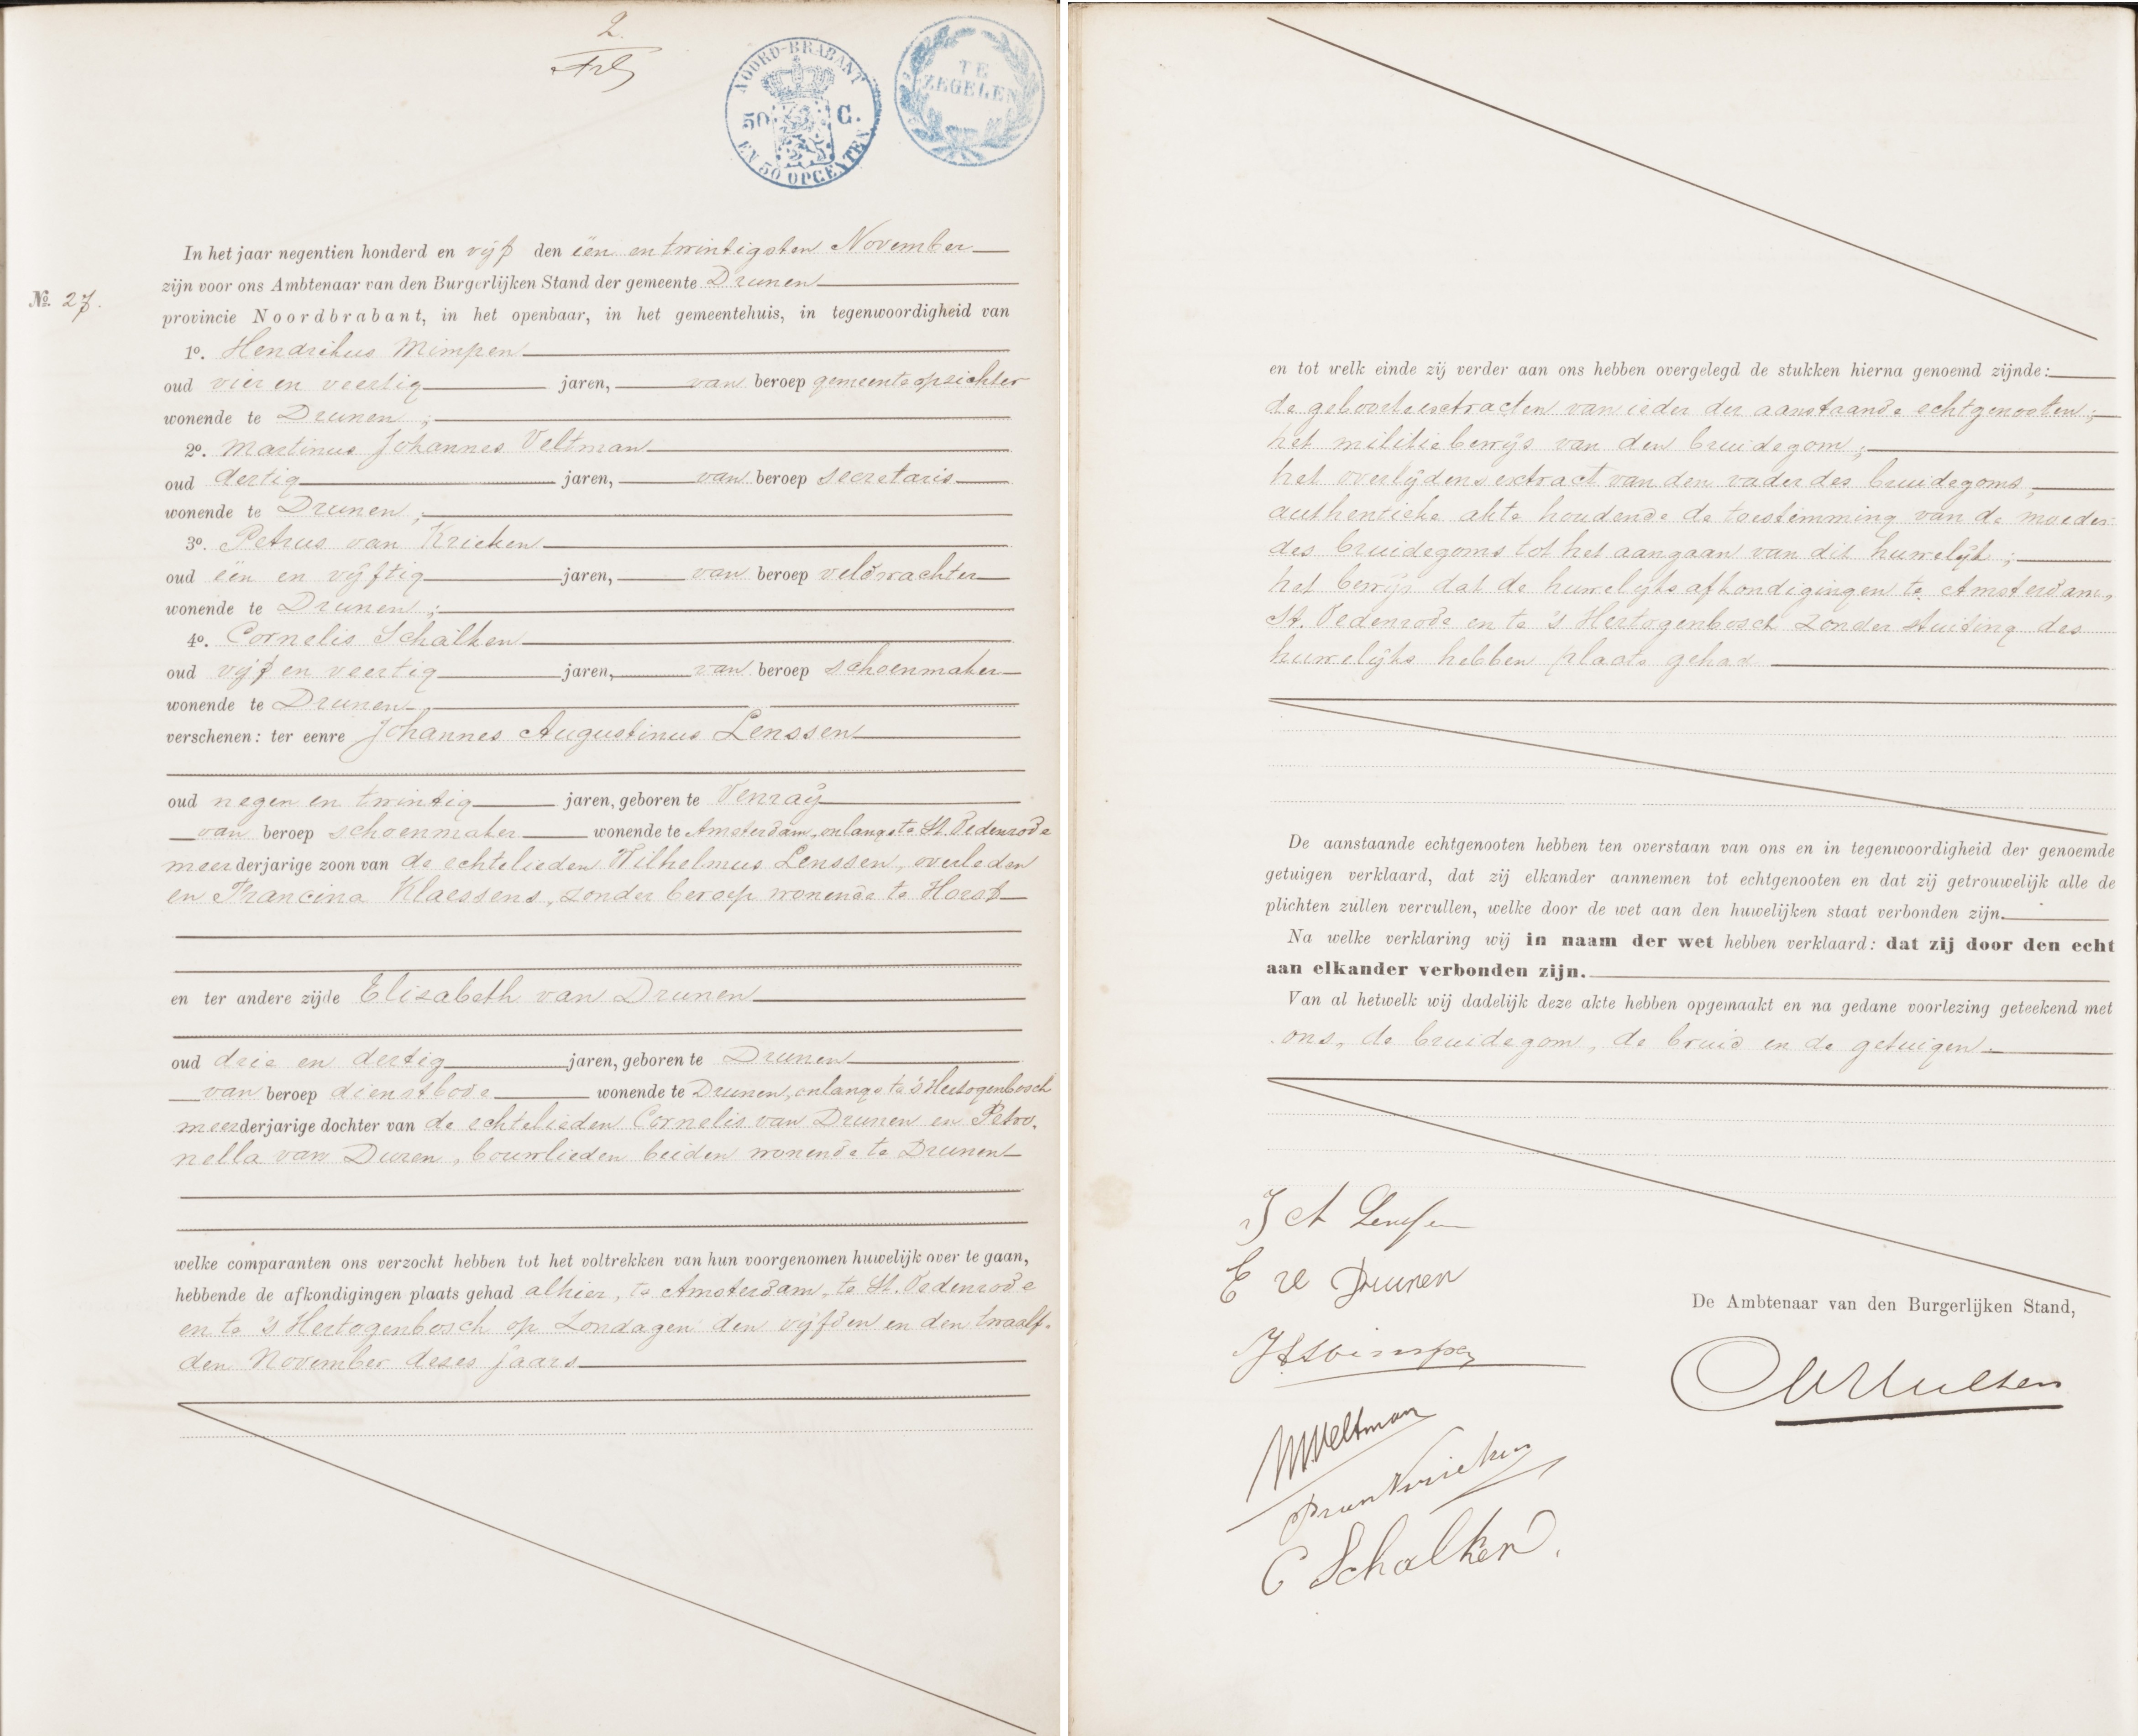 2.
NOORD-BRABANT
50 C.
EN 50 OPCENTEN
TE
ZEGELEN
In het jaar negentien honderd en vijf den één en twintigsten November
zijn voor ons Ambtenaar van den Burgerlijken Stand der gemeente Drunen
No. 27.
provincie Noordbrabant, in het openbaar, in het gemeentehuis, in tegenwoordigheid van
1o. Hendrikus Mimpen
oud vier en veertig jaren, van beroep gemeenteopzichter
wonende te Drunen ;
2o. Martinus Johannes Veltman
oud dertig jaren, van beroep secretaris
wonende te Drunen ;
3o. Petrus van Krieken
oud één en vijftig jaren, van beroep veldwachter
wonende te Drunen ;
4o. Cornelis Schalken
oud vijf en veertig jaren, van beroep schoenmaker
wonende te Drunen
verschenen: ter eenre Johannes Augustinus Lenssen
oud negen en twintig jaren, geboren te Venraÿ
van beroep schoenmaker wonende te Amsterdam, onlangs te St. Oedenrode
meerderjarige zoon van de echtelieden Wilhelmus Lenssen, overleden
en Francina Klaessens, zonder beroep wonende te Horst
en ter andere zijde Elisabeth van Drunen
oud drie en dertig jaren, geboren te Drunen
van beroep dienstbode wonende te Drunen, onlangs te 's Hertogenbosch
meerderjarige dochter van de echtelieden Cornelis van Drunen en Petro-
nella van Duren, bouwlieden beiden wonende te Drunen
welke comparanten ons verzocht hebben tot het voltrekken van hun voorgenomen huwelijk over te gaan,
hebbende de afkondigingen plaats gehad alhier, te Amsterdam, te St. Oedenrode
en te 's Hertogenbosch op Zondagen den vijfden en den twaalf-
den November dezes jaars
en tot welk einde zij verder aan ons hebben overgelegd de stukken hierna genoemd zijnde:
de geboorteextracten van ieder der aanstaande echtgenooten ;
het militiebewijs van den bruidegom ;
het overlijdensextract van den vader des bruidegoms ;
authentieke akte houdende de toestemming van de moeder
des bruidegoms tot het aangaan van dit huwelijk ;
het bewijs dat de huwelijksafkondigingen te Amsterdam,
St. Oedenrode en te 's Hertogenbosch zonder stuiting des
huwelijks hebben plaats gehad
De aanstaande echtgenooten hebben ten overstaan van ons en in tegenwoordigheid der genoemde
getuigen verklaard, dat zij elkander aannemen tot echtgenooten en dat zij getrouwelijk alle de
plichten zullen vervullen, welke door de wet aan den huwelijken staat verbonden zijn.
Na welke verklaring wij in naam der wet hebben verklaard: dat zij door den echt
aan elkander verbonden zijn.
Van al hetwelk wij dadelijk deze akte hebben opgemaakt en na gedane voorlezing geteekend met
ons, de bruidegom, de bruid en de getuigen.
J A Lenssen
E v Drunen
De Ambtenaar van den Burgerlijken Stand,
H Mimpen
MJVeltman
P van Krieken
C Schalken.